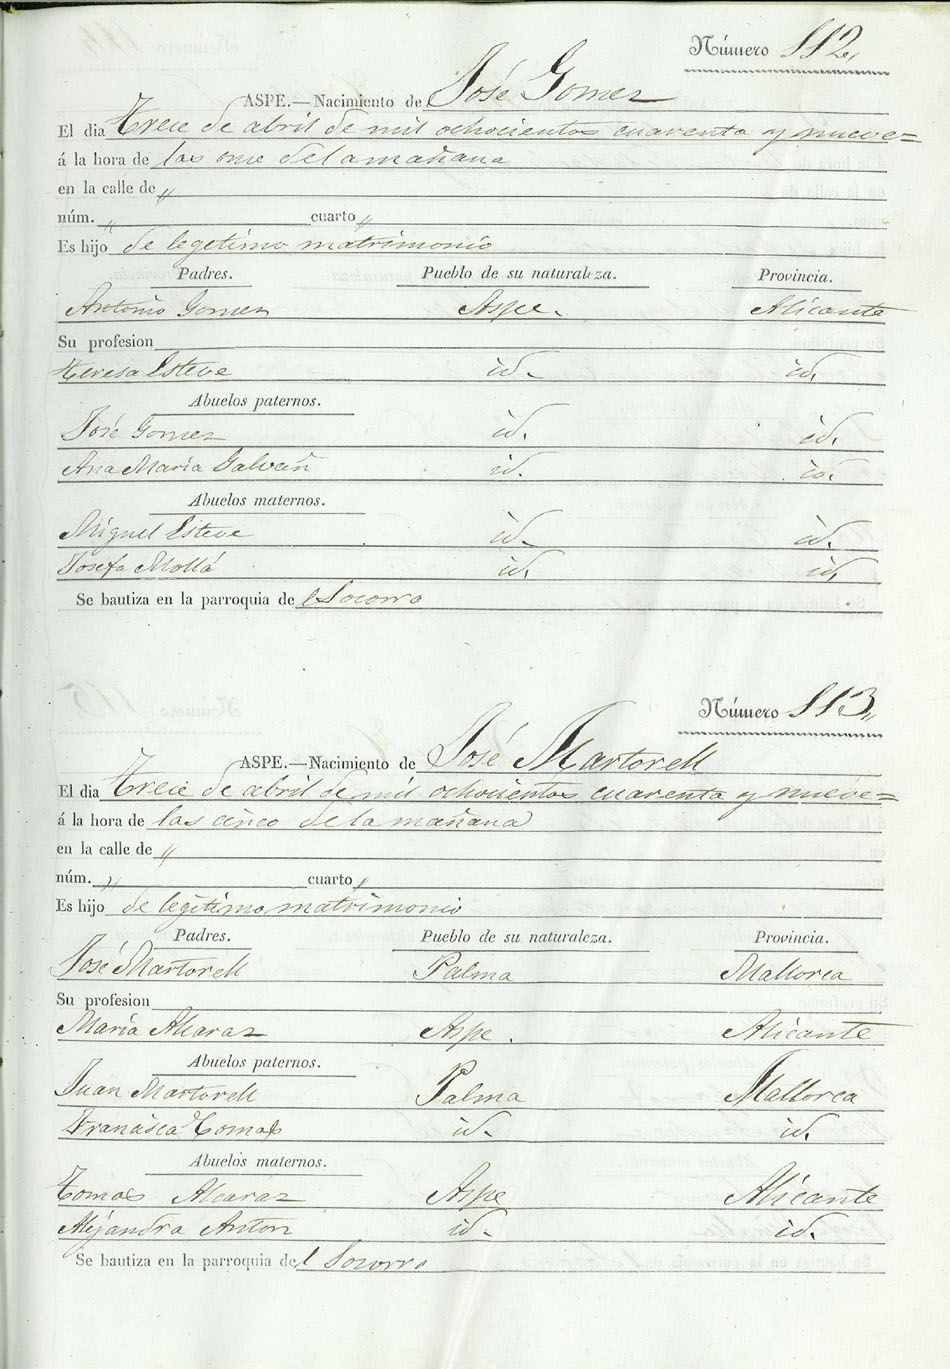 Número 112,,
ASPE.—Nacimiento de José Gomez
El dia trece de abril de mil ochocientos cuarenta y nueve=
á la hora de las once de la mañana
en la calle de "
núm. " cuarto "
Es hijo de legítimo matrimonio
Padres. Pueblo de su naturaleza. Provincia.
Antonio Gomez Aspe. Alicante
Su profesion
Teresa Esteve id. id.
Abuelos paternos.
José Gomez id. id.
Ana Maria Galvañ id. id.
Abuelos maternos.
Miguel Esteve id. id.
Josefa Mollá id. id.
Se bautiza en la parroquia del Socorro
Número 113,,
ASPE.—Nacimiento de José Martorell
El dia trece de abril de mil ochocientos cuarenta y nueve=
á la hora de las cinco de la mañana
en la calle de "
núm. " cuarto "
Es hijo de legítimo matrimonio
Padres. Pueblo de su naturaleza. Provincia.
José Martorell Palma Mallorca
Su profesion
María Alcaraz Aspe. Alicante
Abuelos paternos.
Juan Martorell Palma Mallorca
Francisca Tomas id. id.
Abuelos maternos.
Tomas Alcaraz Aspe Alicante
Alejandra Anton id. id.
Se bautiza en la parroquia del Socorro